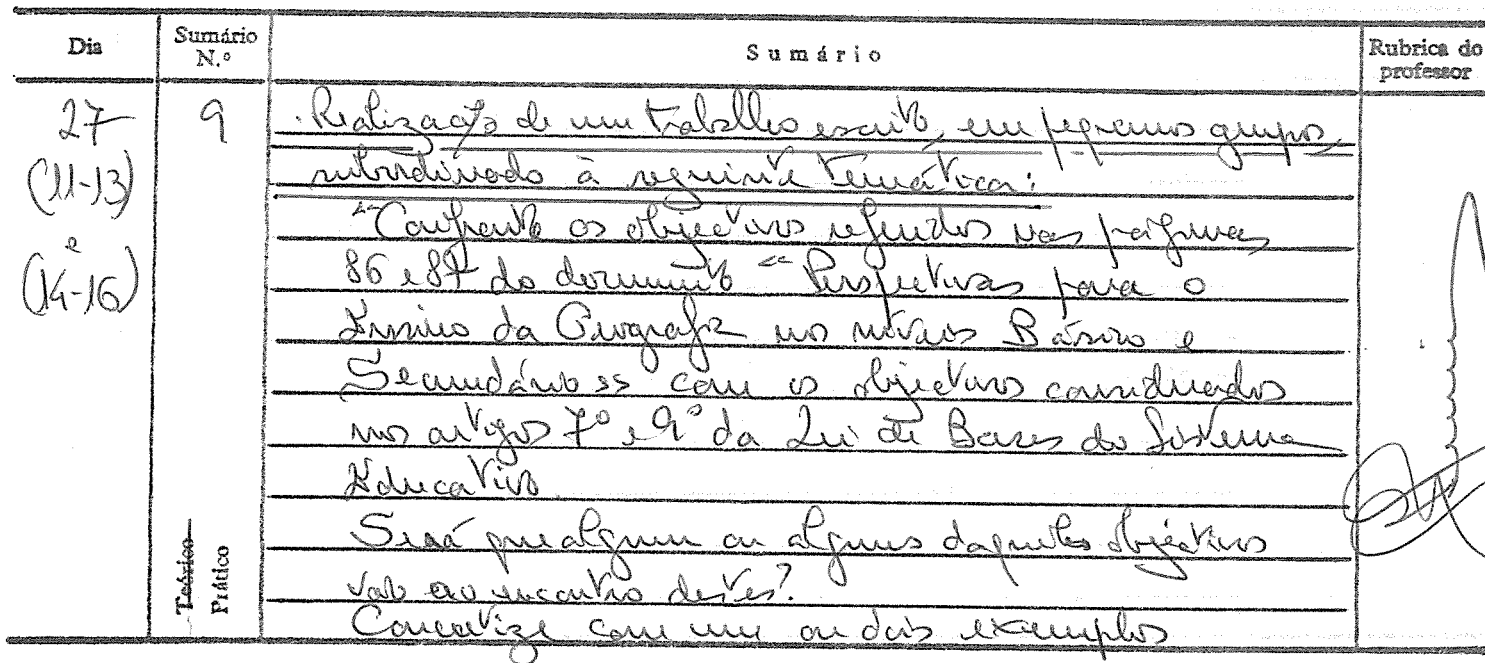 Dia
Sumário
N.º
Sumário
Rubrica do
professor
27
(11-13)
e
(14-16)
9
Teórico
Prático
. Realização de um trabalho escrito, em pequenos grupos,
subordinado à seguinte temática:
“Confronte os objectivos referidos nas páginas
86 e 87 do documento “Perspectivas para o
Ensino da Geografia nos níveis Básico e
Secundário” com os objectivos considerados
nos artigos 7º e 9º da Lei de Bases do Sistema
Educativo.
Será que algum ou alguns daqueles objectivos
vão ao encontro destes?
Concretize com um ou dois exemplos